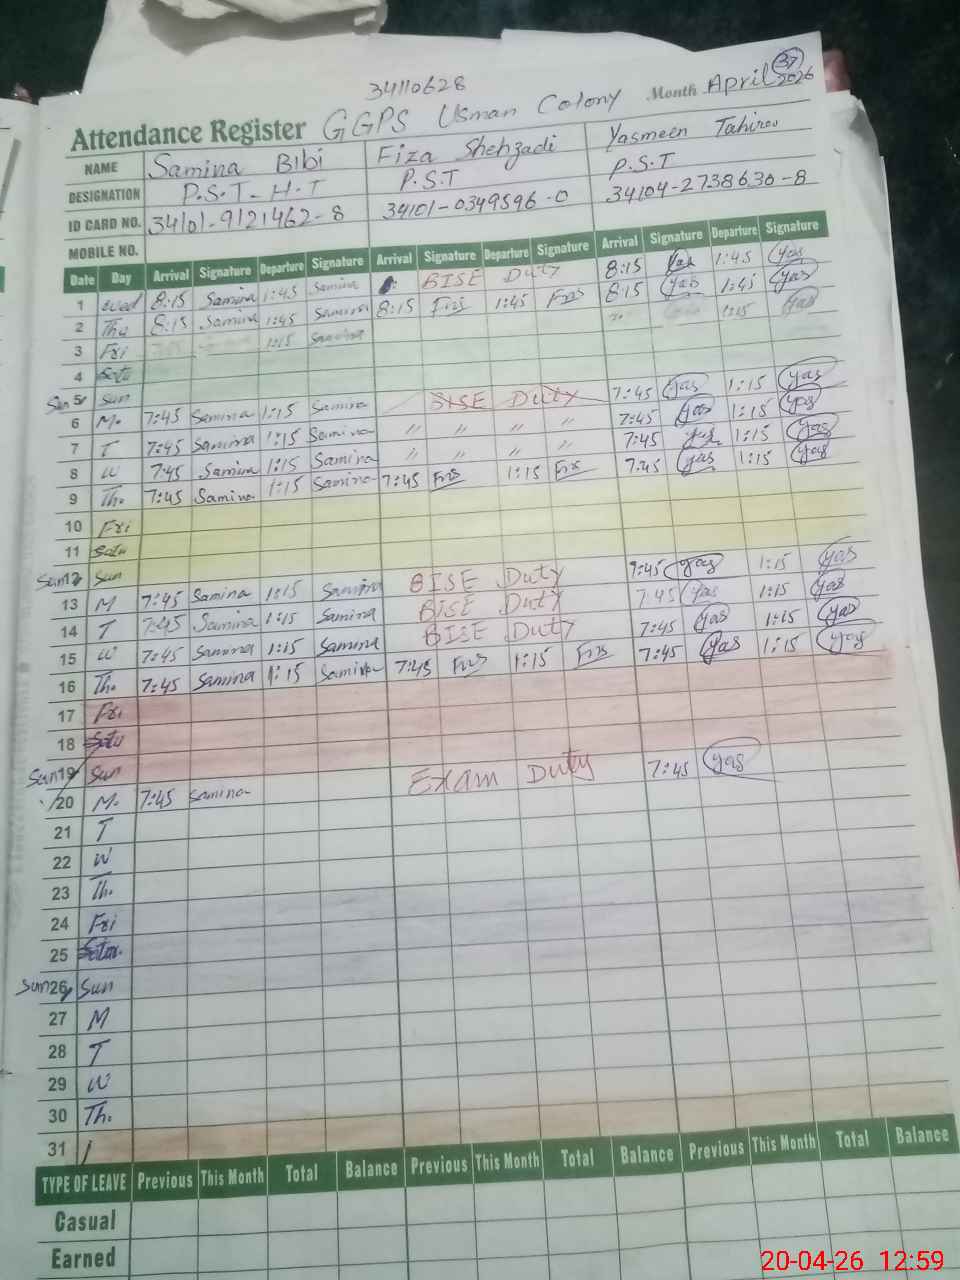 34110628
37
Attendance Register GGPS Usman Colony Month April 2026
NAME Samina Bibi Fiza Shehzadi Yasmeen Tahira
DESIGNATION P.S.T-H.T P.S.T P.S.T
ID CARD NO. 34101-9121462-8 34101-0349596-0 34104-2738630-8
MOBILE NO.
Date Day Arrival Signature Departure Signature Arrival Signature Departure Signature Arrival Signature Departure Signature
1 Wed 8:15 Samina 1:45 Samina BISE Duty 8:15 Yas 1:45 Yas
2 Thu 8:15 Samina 1:45 Samina 8:15 1:45 8:15 Yas 1:45 Yas
3 Fri 1:15 Samina 1:15 Yas
4 Satu
Sun 5 Sun
6 M. 7:45 Samina 1:15 Samina BISE Duty 7:45 Yas 1:15 Yas
7 T 7:45 Samina 1:15 Samina " " " " 7:45 Yas 1:15 Yas
8 W 7:45 Samina 1:15 Samina " " " " 7:45 Yas 1:15 Yas
9 Th. 7:45 Samina 1:15 Samina 7:45 1:15 7:45 Yas 1:15 Yas
10 Fri
11 Satu
Sun 12 Sun
13 M 7:45 Samina 1:15 Samina BISE Duty 7:45 Yas 1:15 Yas
14 T 7:45 Samina 1:15 Samina BISE Duty 7:45 Yas 1:15 Yas
15 W 7:45 Samina 1:15 Samina BISE Duty 7:45 Yas 1:15 Yas
16 Th. 7:45 Samina 1:15 Samina 7:45 1:15 7:45 Yas 1:15 Yas
17 Fri
18 Satu
Sun 19 Sun
20 M. 7:45 Samina Exam Duty 7:45 Yas
21 T
22 W
23 Th.
24 Fri
25 Satur.
Sun 26 Sun
27 M
28 T
29 W
30 Th.
31
TYPE OF LEAVE Previous This Month Total Balance Previous This Month Total Balance Previous This Month Total Balance
Casual
Earned
20-04-26 12:59